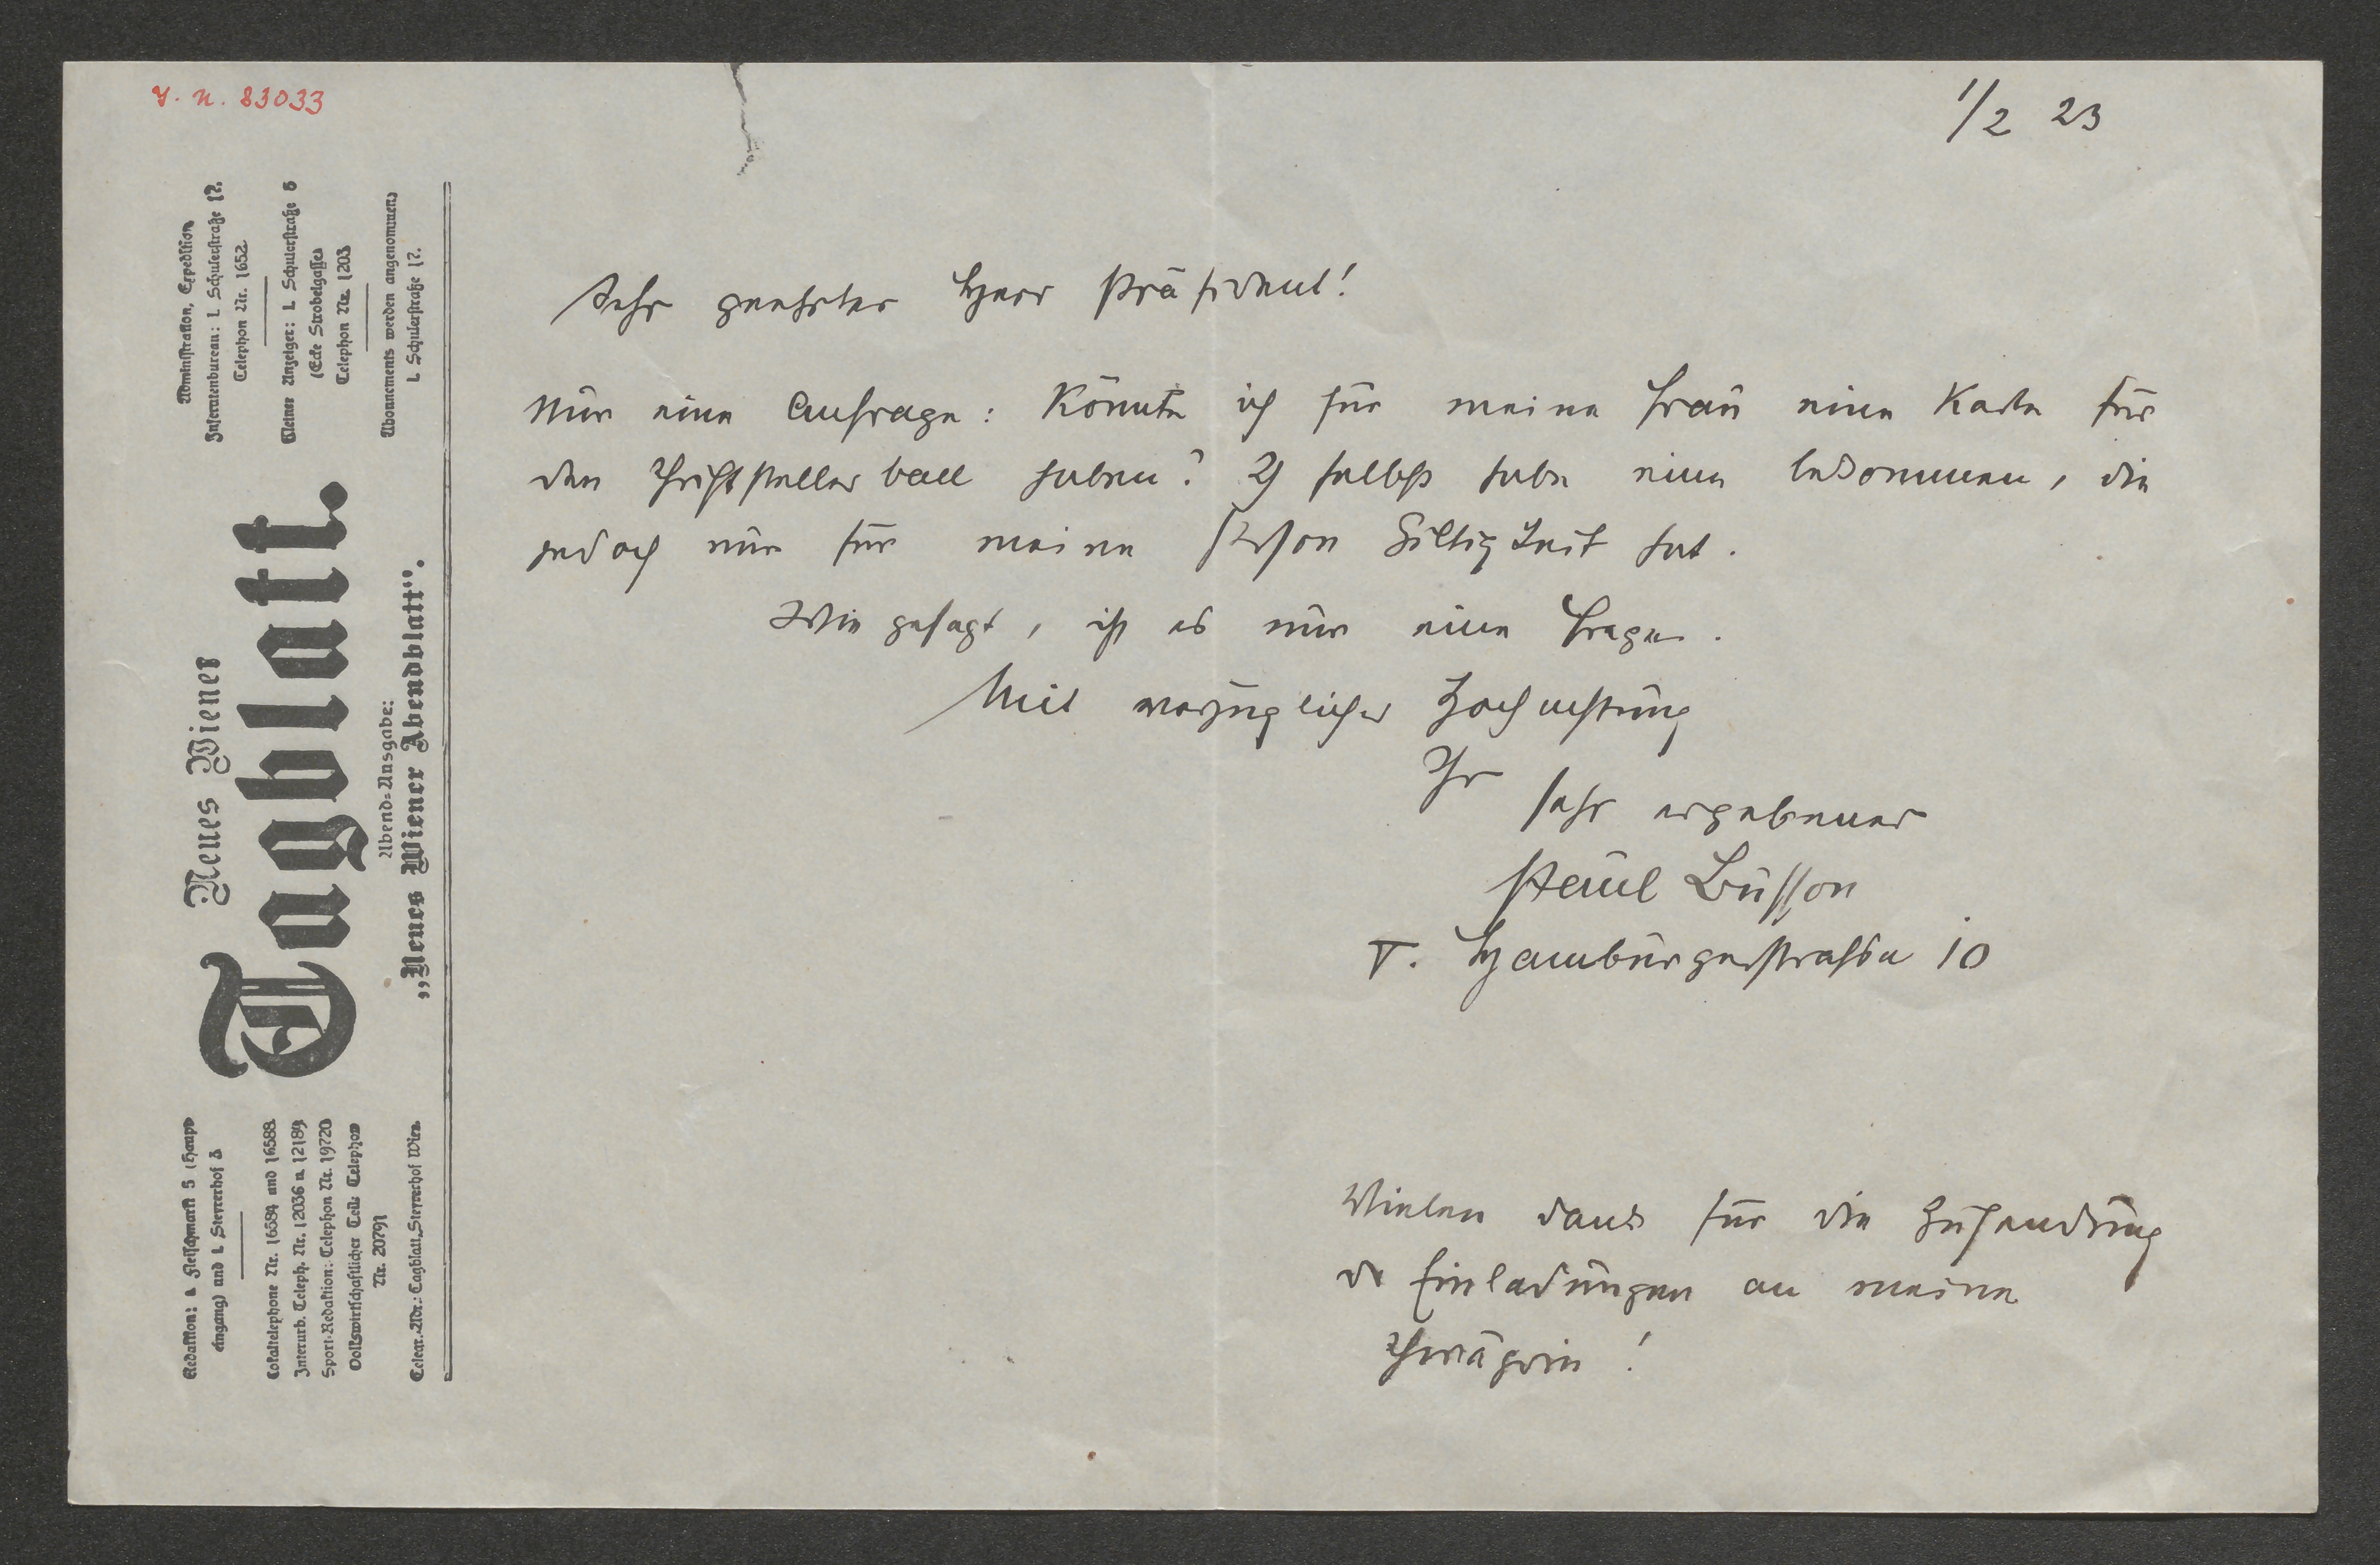 J. N. 83033
1/2 23
Administration, Expedition
Inseratenbureau: I. Schulerstraße 17.
Telephon Nr. 1652
Kleiner Anzeiger: I. Schulerstraße
(Ecke Strobelgasse)
Telephon Nr. 1203
Abonnements werden angenommen:
I. Schulerstraße 17.
Neues Wiener
Tagblatt.
Abend-Ausgabe:
„Neues Wiener Abendblatt“.
Redaktion: Fleischmarkt 5 (Haupt-
eingang) und I. Steyrerhof 3
Lokaltelephone Nr. 16584 und 16588
Interurb. Teleph. Nr. 12036 u. 12189
Sport-Redaktion: Telephon Nr. 19720
Volkswirtschaftlicher Teil: Telephon
Nr. 20791
Telegr.-Adr.: Tagblatt Steyrerhof Wien
Sehr geehrter Herr Präsident!
Nur eine Anfrage: Könnte ich für meine Frau eine Karte für
den Schriftstellerball haben? Ich selbst habe eine bekommen, die
jedoch nur für meine Person Giltigkeit hat.
Wie gesagt, ist es nur eine Frage.
Mit vorzüglicher Hochachtung
Ihr
sehr ergebener
Paul Busson
V. Hamburgerstrasse 10
Vielen Dank für die Zusendung
der Einladungen an meine
Schwägerin!